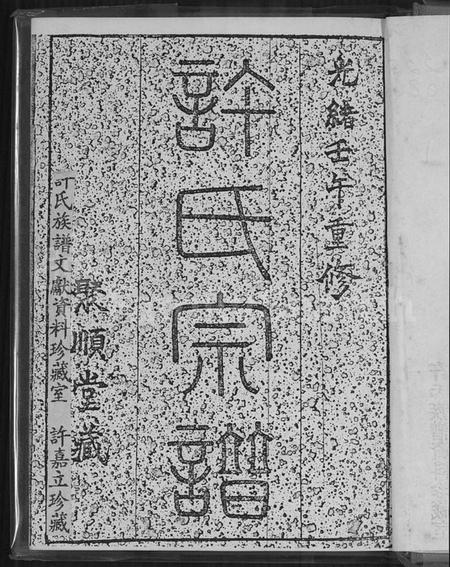 光緒壬午重修
許氏宗譜
聚順堂藏
許氏族譜文獻資料珍藏室 許嘉立珍藏